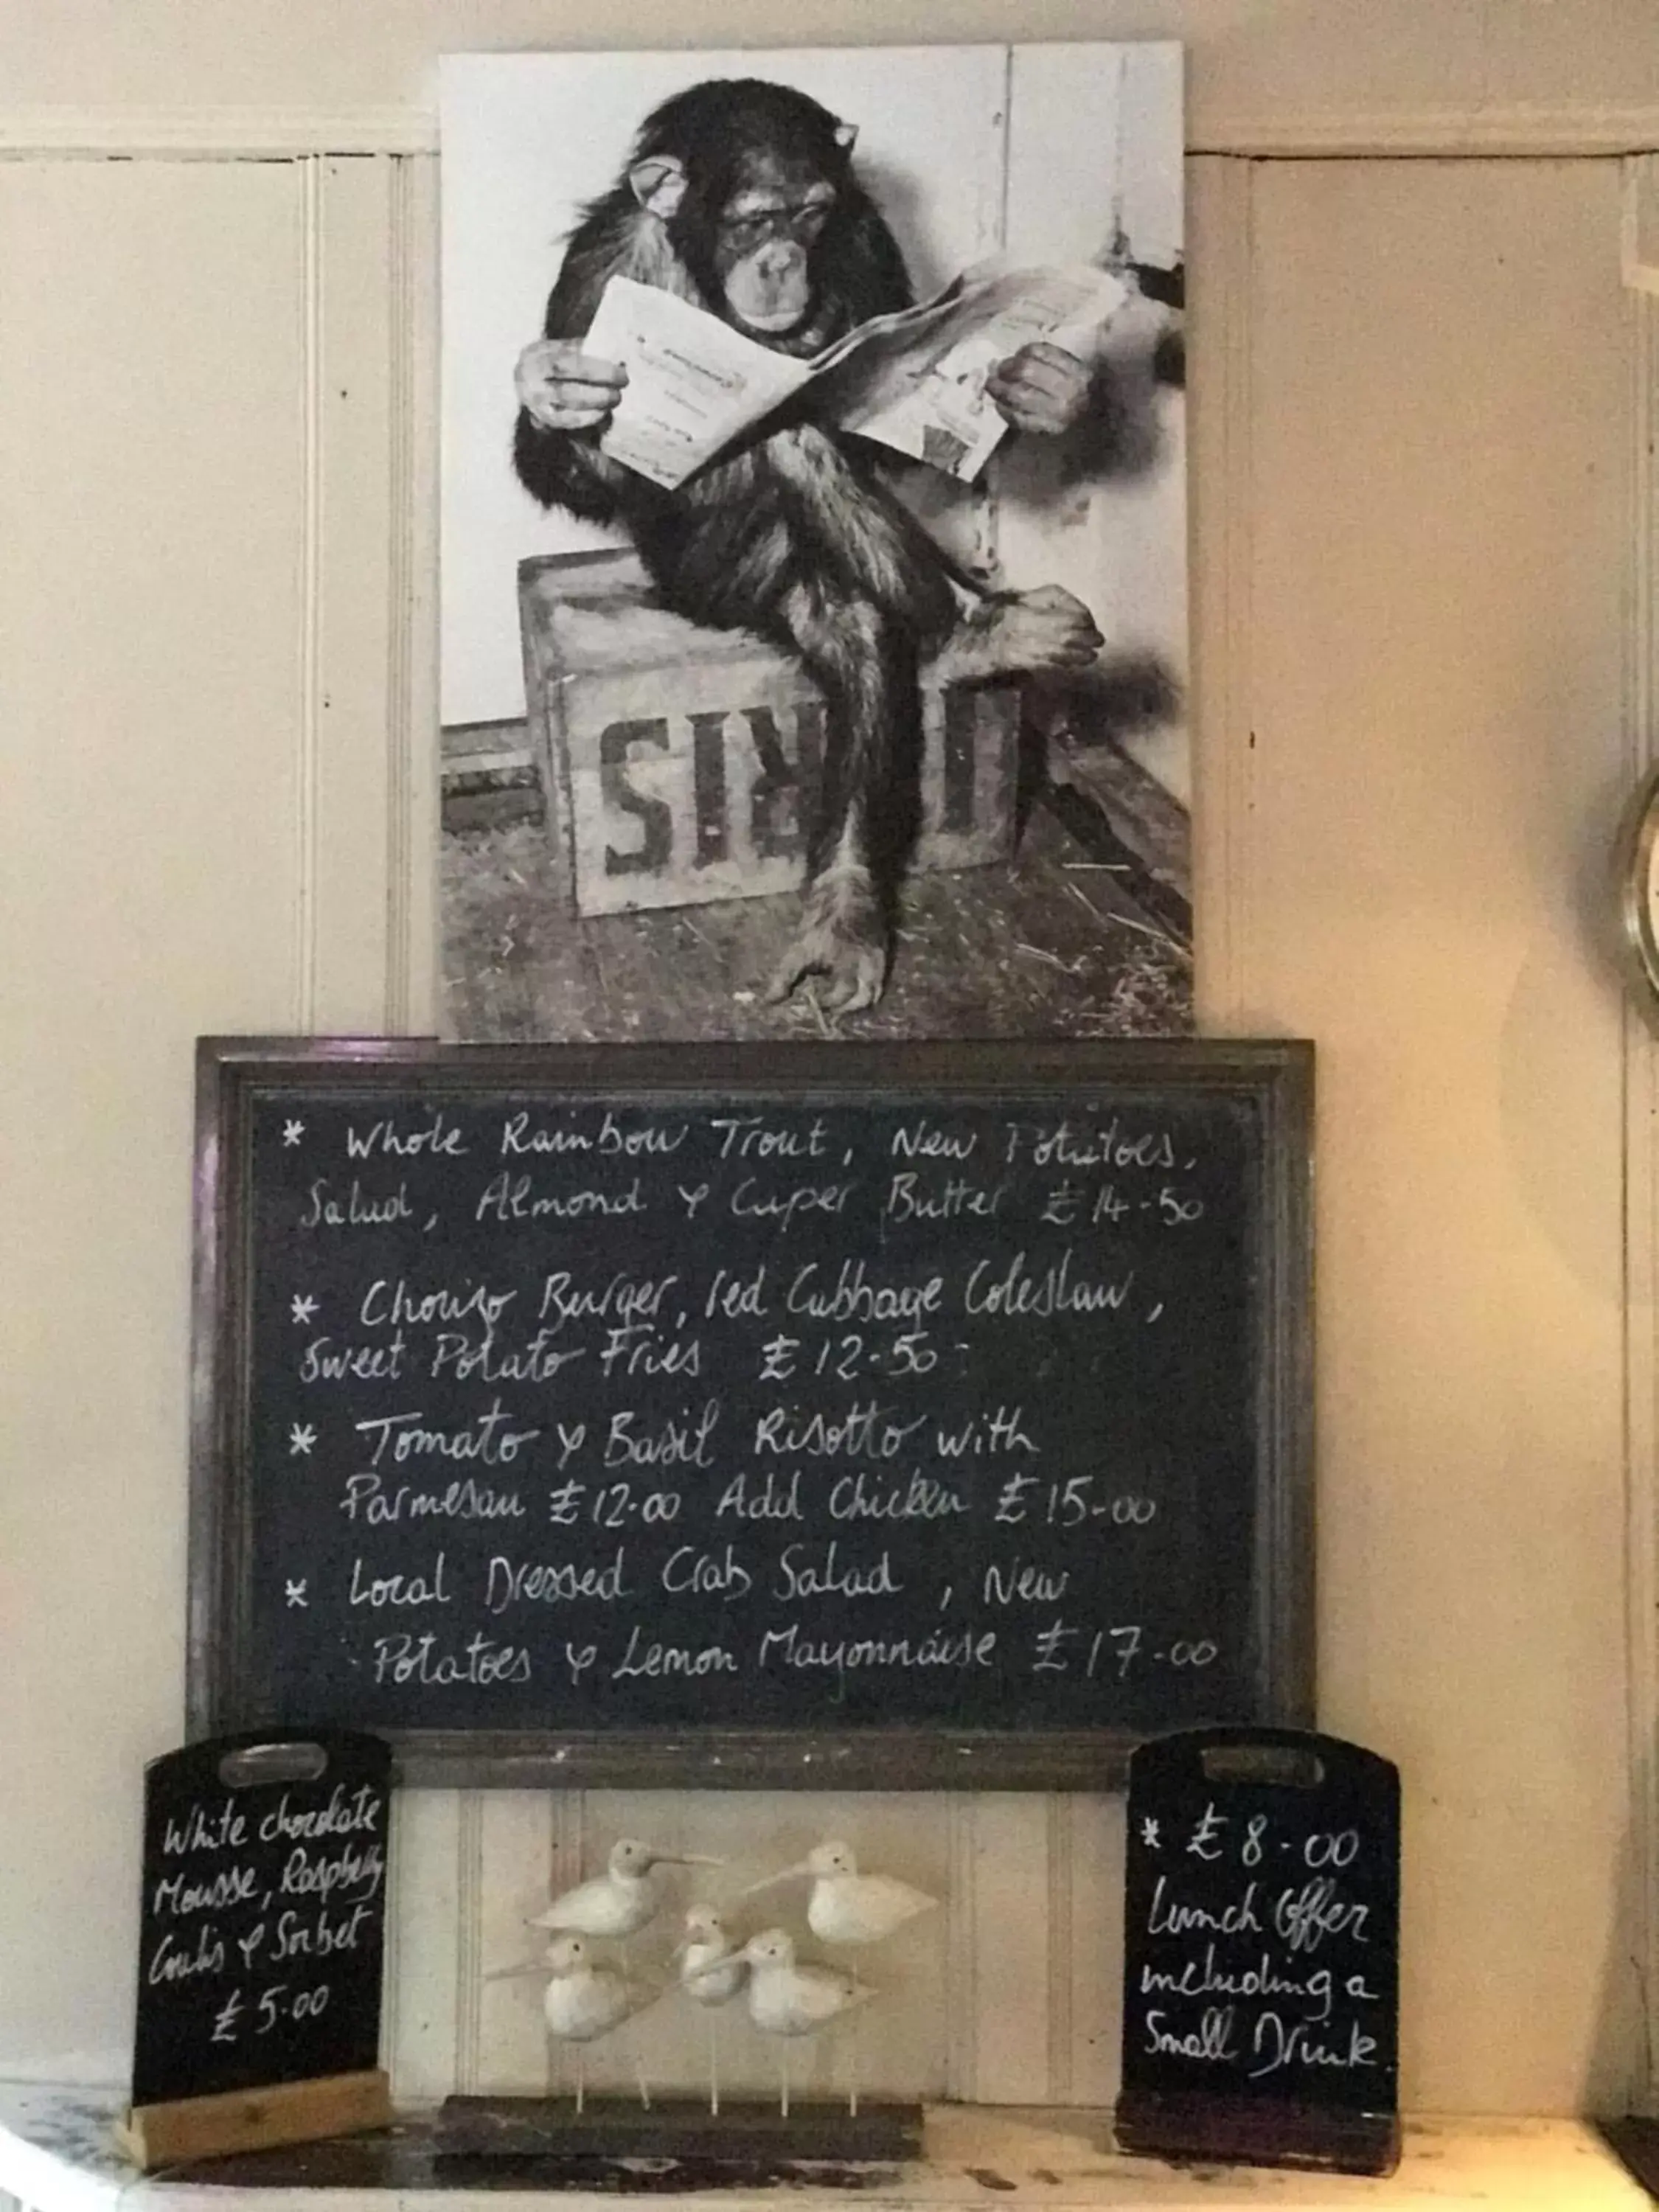 SIЯ
* Whole Rainbow Trout, New Potatoes,
Salad, Almond & Caper Butter £14-50
* Chorizo Burger, red Cabbage Coleslaw,
Sweet Potato Fries £12-50
* Tomato & Basil Risotto with
Parmesan £12-00 Add Chicken £15-00
* Local Dressed Crab Salad, New
Potatoes & Lemon Mayonnaise £17-00
White chocolate
Mousse, Raspberry
Coulis & Sorbet
£5-00
* £8-00
Lunch Offer
including a
Small Drink.